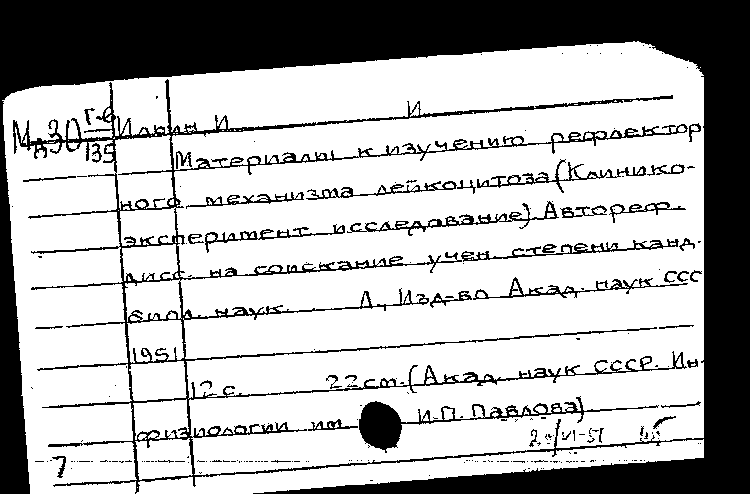 Мд30 Г-6/135 Ильин, И. И
Материалы к изучению рефлектор
ного механизма лейкоцитоза (Клинико-
эксперимент исследование). Автореф.
дисс. на соискание учен. степени канд.
биол. наук. Л., Изд-во Акад. наук ССС
1951
12 с. 22 cm. (Акад. наук СССР. Ин-
физиологии им. И.П. Павлова)
7